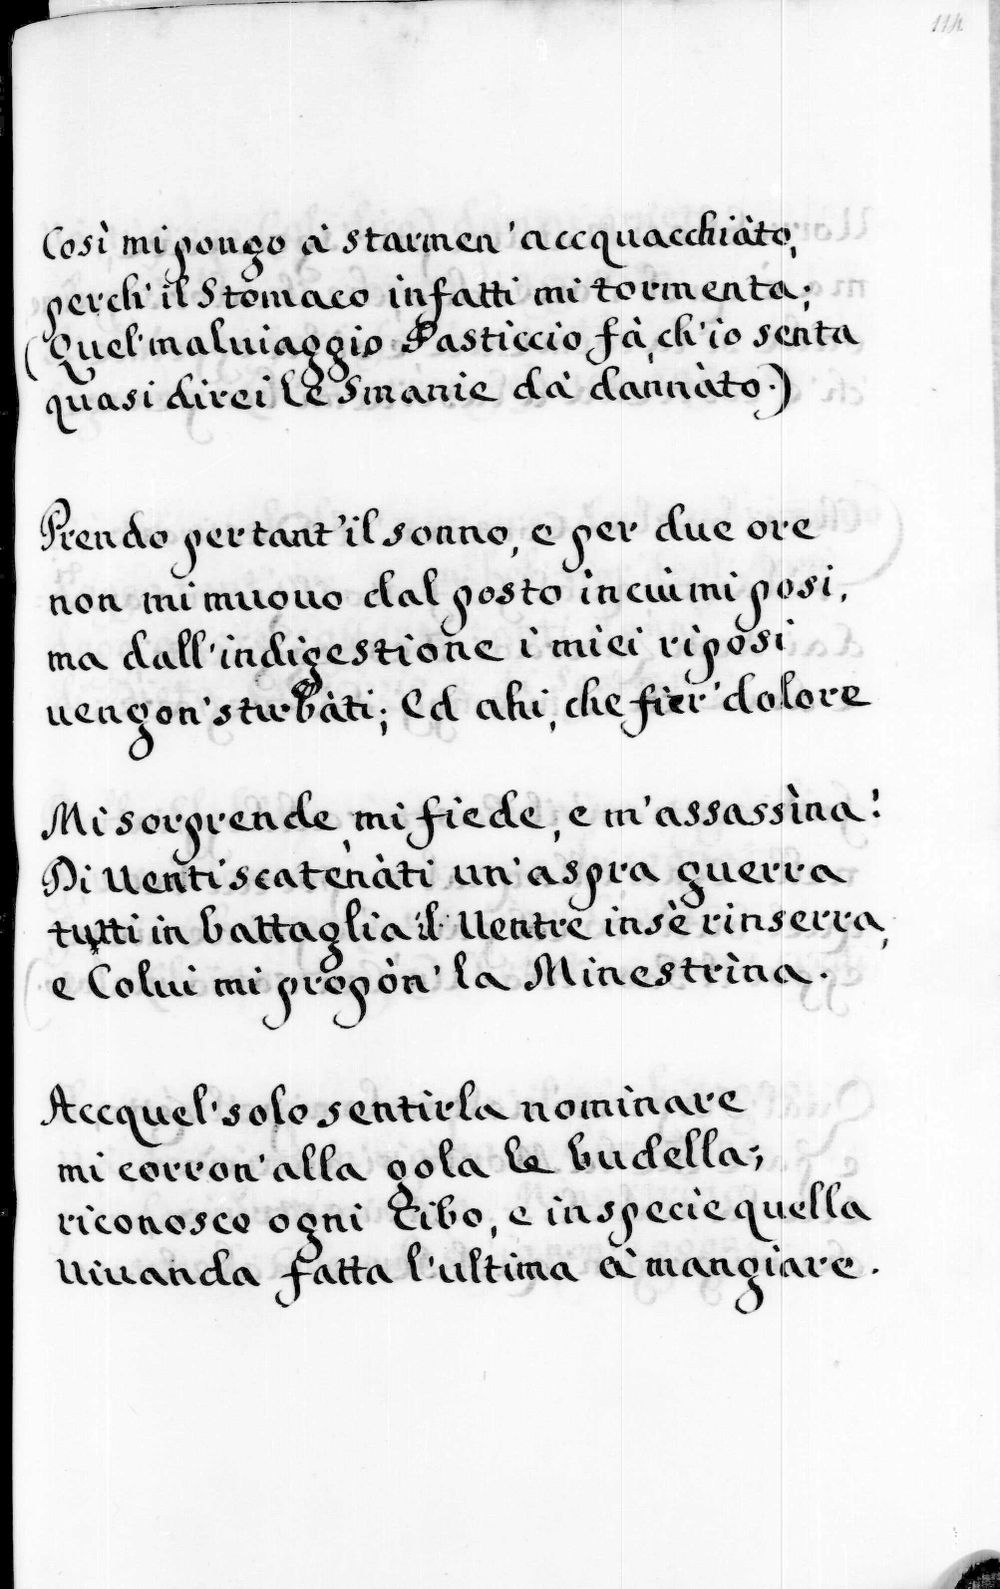 114
Così mi pongo à starmen' accquacchiàto,
perch' il Stomaco infatti mi tormenta;
(Quel' maluiaggio Pasticcio fà, ch' io senta
quasi direi le Smanie dà dannàto.)
Prendo pertant' il sonno, e per due ore
non mi muouo dal posto in cui mi posi,
ma dall' indigestione i miei riposi
uengon' sturbàti; Ed ahi, che fier' dolore
Mi sorprende, mi fiede, e m' assassìna!
Di Uenti scatenàti un' aspra guerra
tutti in battaglia il Uentre in sè rinserra,
e Colui mi propòn' la Minestrìna.
Accquel' solo sentirla nominare
mi corron' alla gola le budella;
riconosco ogni Cibo, e in specie quella
Uiuanda fatta l'ultima à mangiare.